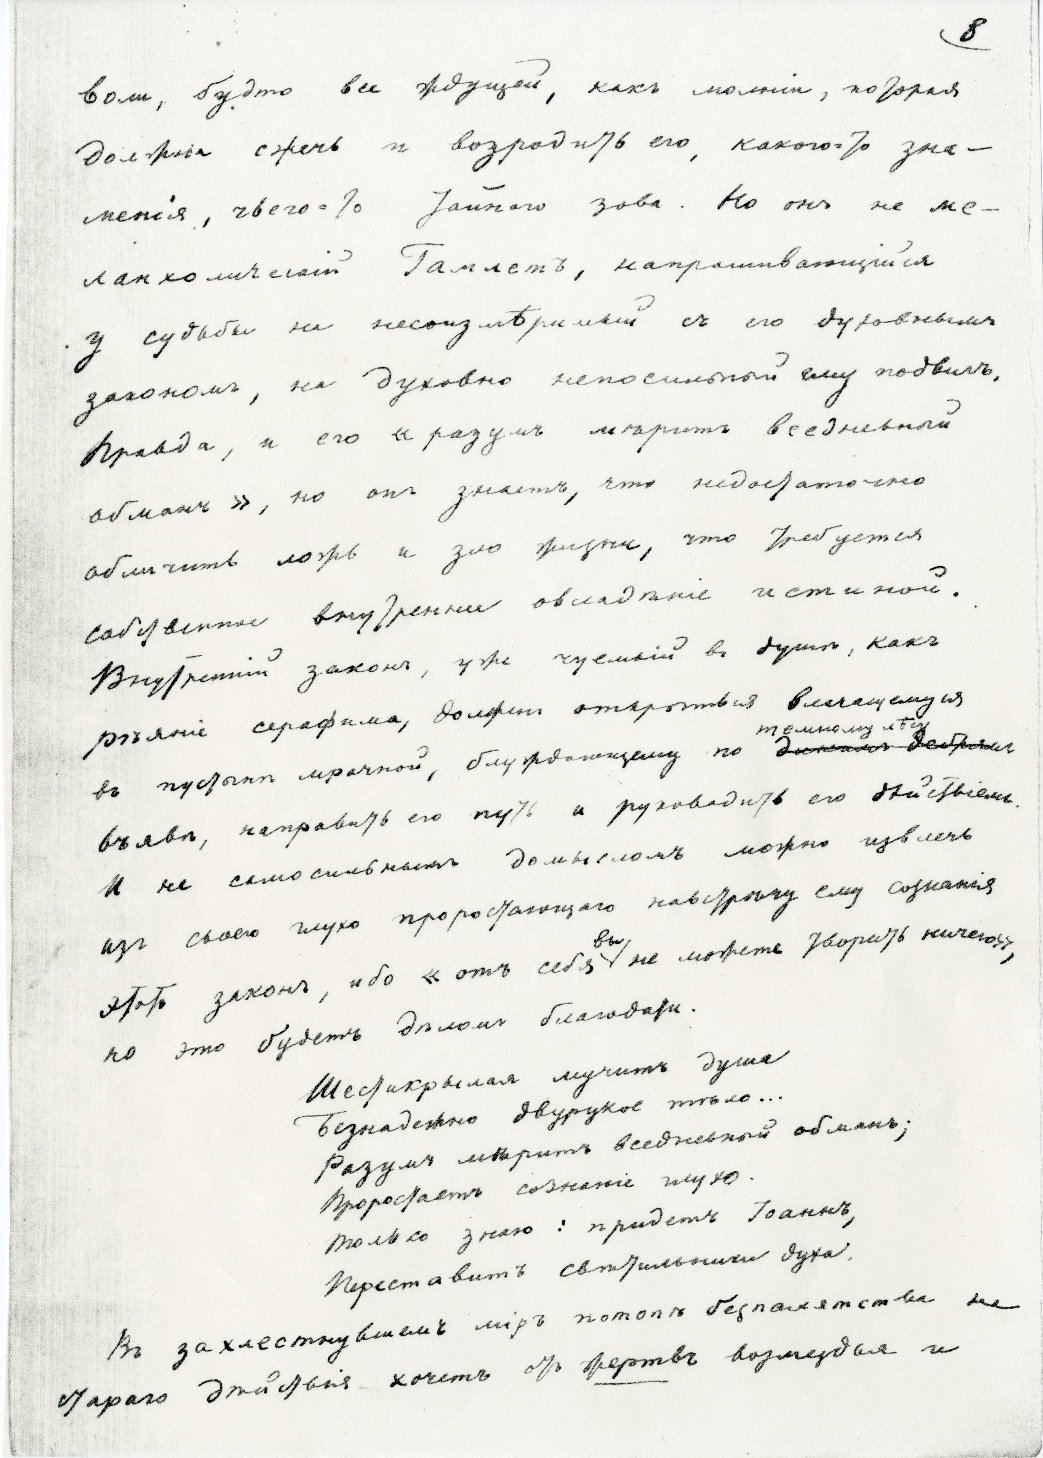 8
воли, будто все ждущей, какъ молніи, которая
должна сжечь и возродить его, какого-то зна-
менія, чьего-то тайного зова. Но онъ не ме-
ланхолическій Гамлетъ, напрашивающійся
у судьбы на несоизмѣримый съ его духовнымъ
закономъ, на духовно непосильный ему подвигъ.
Правда, и его « разумъ мѣритъ вседневный
обманъ », но онъ знаетъ, что недостаточно
обличить ложь и зло жизни, что требуется
собственное внутреннее овладѣніе истиной.
Внутренній законъ, уже чуемый въ душѣ, какъ
рѣяніе серафима, долженъ открыться влачащемуся
темному лѣсу
въ пустынѣ мрачной, блуждающему по дикимъ дебрямъ
въявь, направить его путь и руководить его дѣйствіемъ.
И не самосильнымъ домысломъ можно извлечь
изъ своего глухо проростающаго навстрѣчу ему сознанія
этотъ законъ, ибо « отъ себя вы не можете творить ничего »,
но это будетъ дѣломъ благодати.
Шестикрылая мучитъ душа
Безнадежно двурукое тѣло...
Разумъ мѣритъ вседневный обманъ;
Проростаетъ сознаніе глухо.
Только знаю : придетъ Іоаннъ,
Переставитъ свѣтильники духа.
Въ захлестнувшемъ міръ потопѣ безпамятства не
стараго дѣйствія хочетъ отъ жертвъ возмездья и